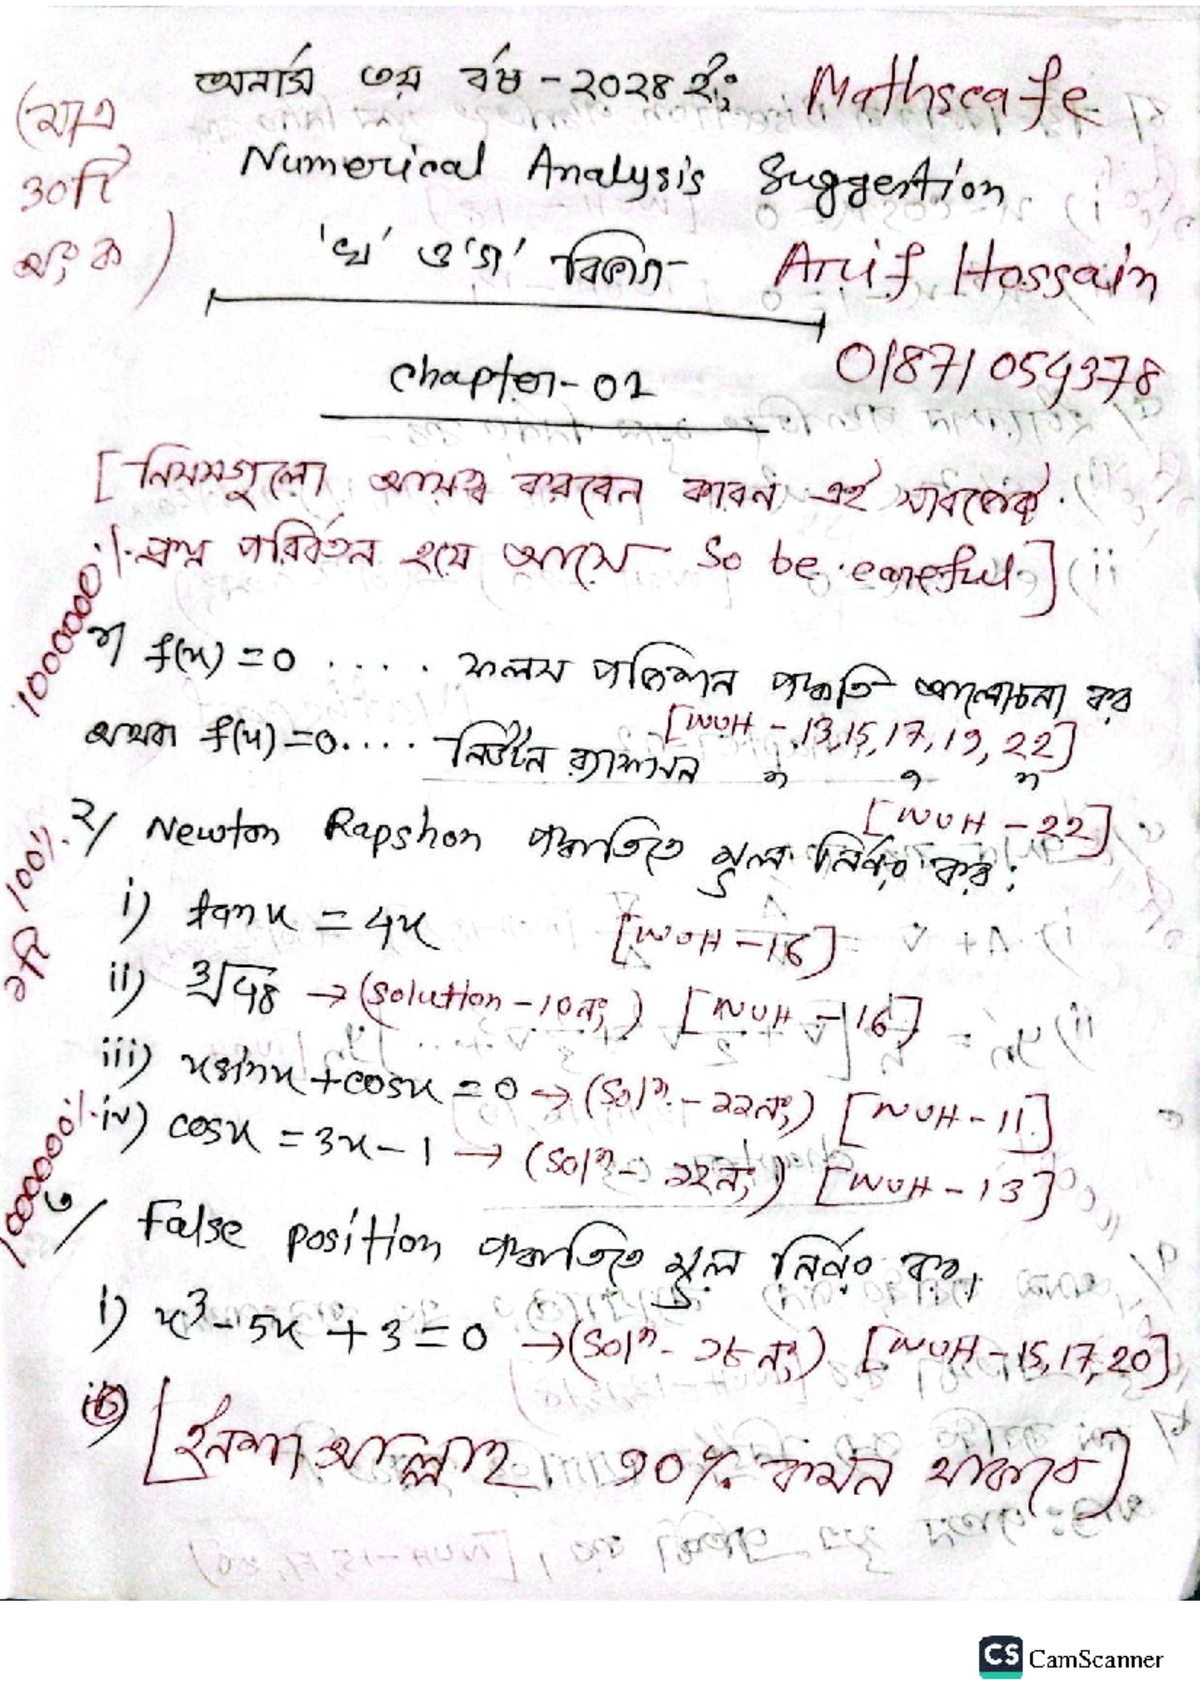 অনার্স ৩য় বর্ষ - ২০২৪ ইং Mathscafe
(মাত্র ৩০টি অংক)
Numerical Analysis Suggestion
'খ' ও 'গ' বিভাগ- Arif Hossain
Chapter-02 01871054378
[নিয়মগুলো আয়ত্ব করবেন কারন এই সাবজেক্টে
প্রশ্ন পরিবর্তন হয়ে আসে So be careful]
1000000%
১/ f(x) = 0 .... ফলস পজিশন পদ্ধতি আলোচনা কর
[NUH - 13,15,17,19,22]
অথবা f(x) = 0.... নিউটন র‍্যাফসন
[NUH - 22]
২/ Newton Rapshon পদ্ধতিতে মূল নির্ণয় কর:
১টি 100%
i) tanx = 4x [NUH - 16]
ii) ∛48 → (Solution - 10নং) [NUH - 16]
iii) xsinx + cosx = 0 → (Solⁿ - ২২নং) [NUH - 11]
iv) cosx = 3x - 1 → (Solⁿ - ১২নং) [NUH - 13]
1000000%
৩/ False position পদ্ধতিতে মূল নির্ণয় কর।
i) x³ - 5x + 3 = 0 → (Solⁿ - ২৮নং) [NUH - 15,17,20]
[ইনশাআল্লাহ ৯০% কমন থাকবে]
CS CamScanner